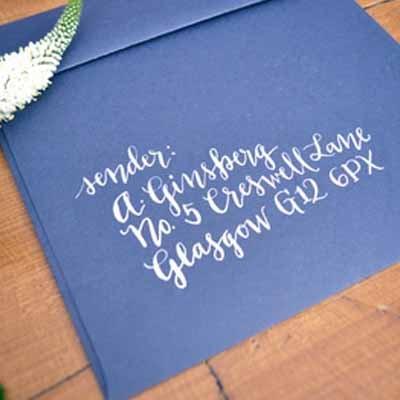 sender:
A. Ginsberg
No. 5 Creswell Lane
Glasgow G12 6PX